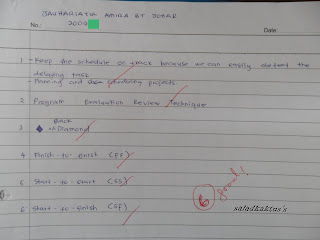 JAUHARIATUL AMIRA BT JOHAR
No.: 2009
Date:
1 - Keep the schedule on track because we can easily detect the
delaying task
- Planning and scheduling projects
2 Program Evaluation Review Technique
BACK
3 Diamond
4 Finish-to-finish (FF)
5 Start-to-start (SS)
6 Start-to-finish (SF)
6 good!
saladkaktus's